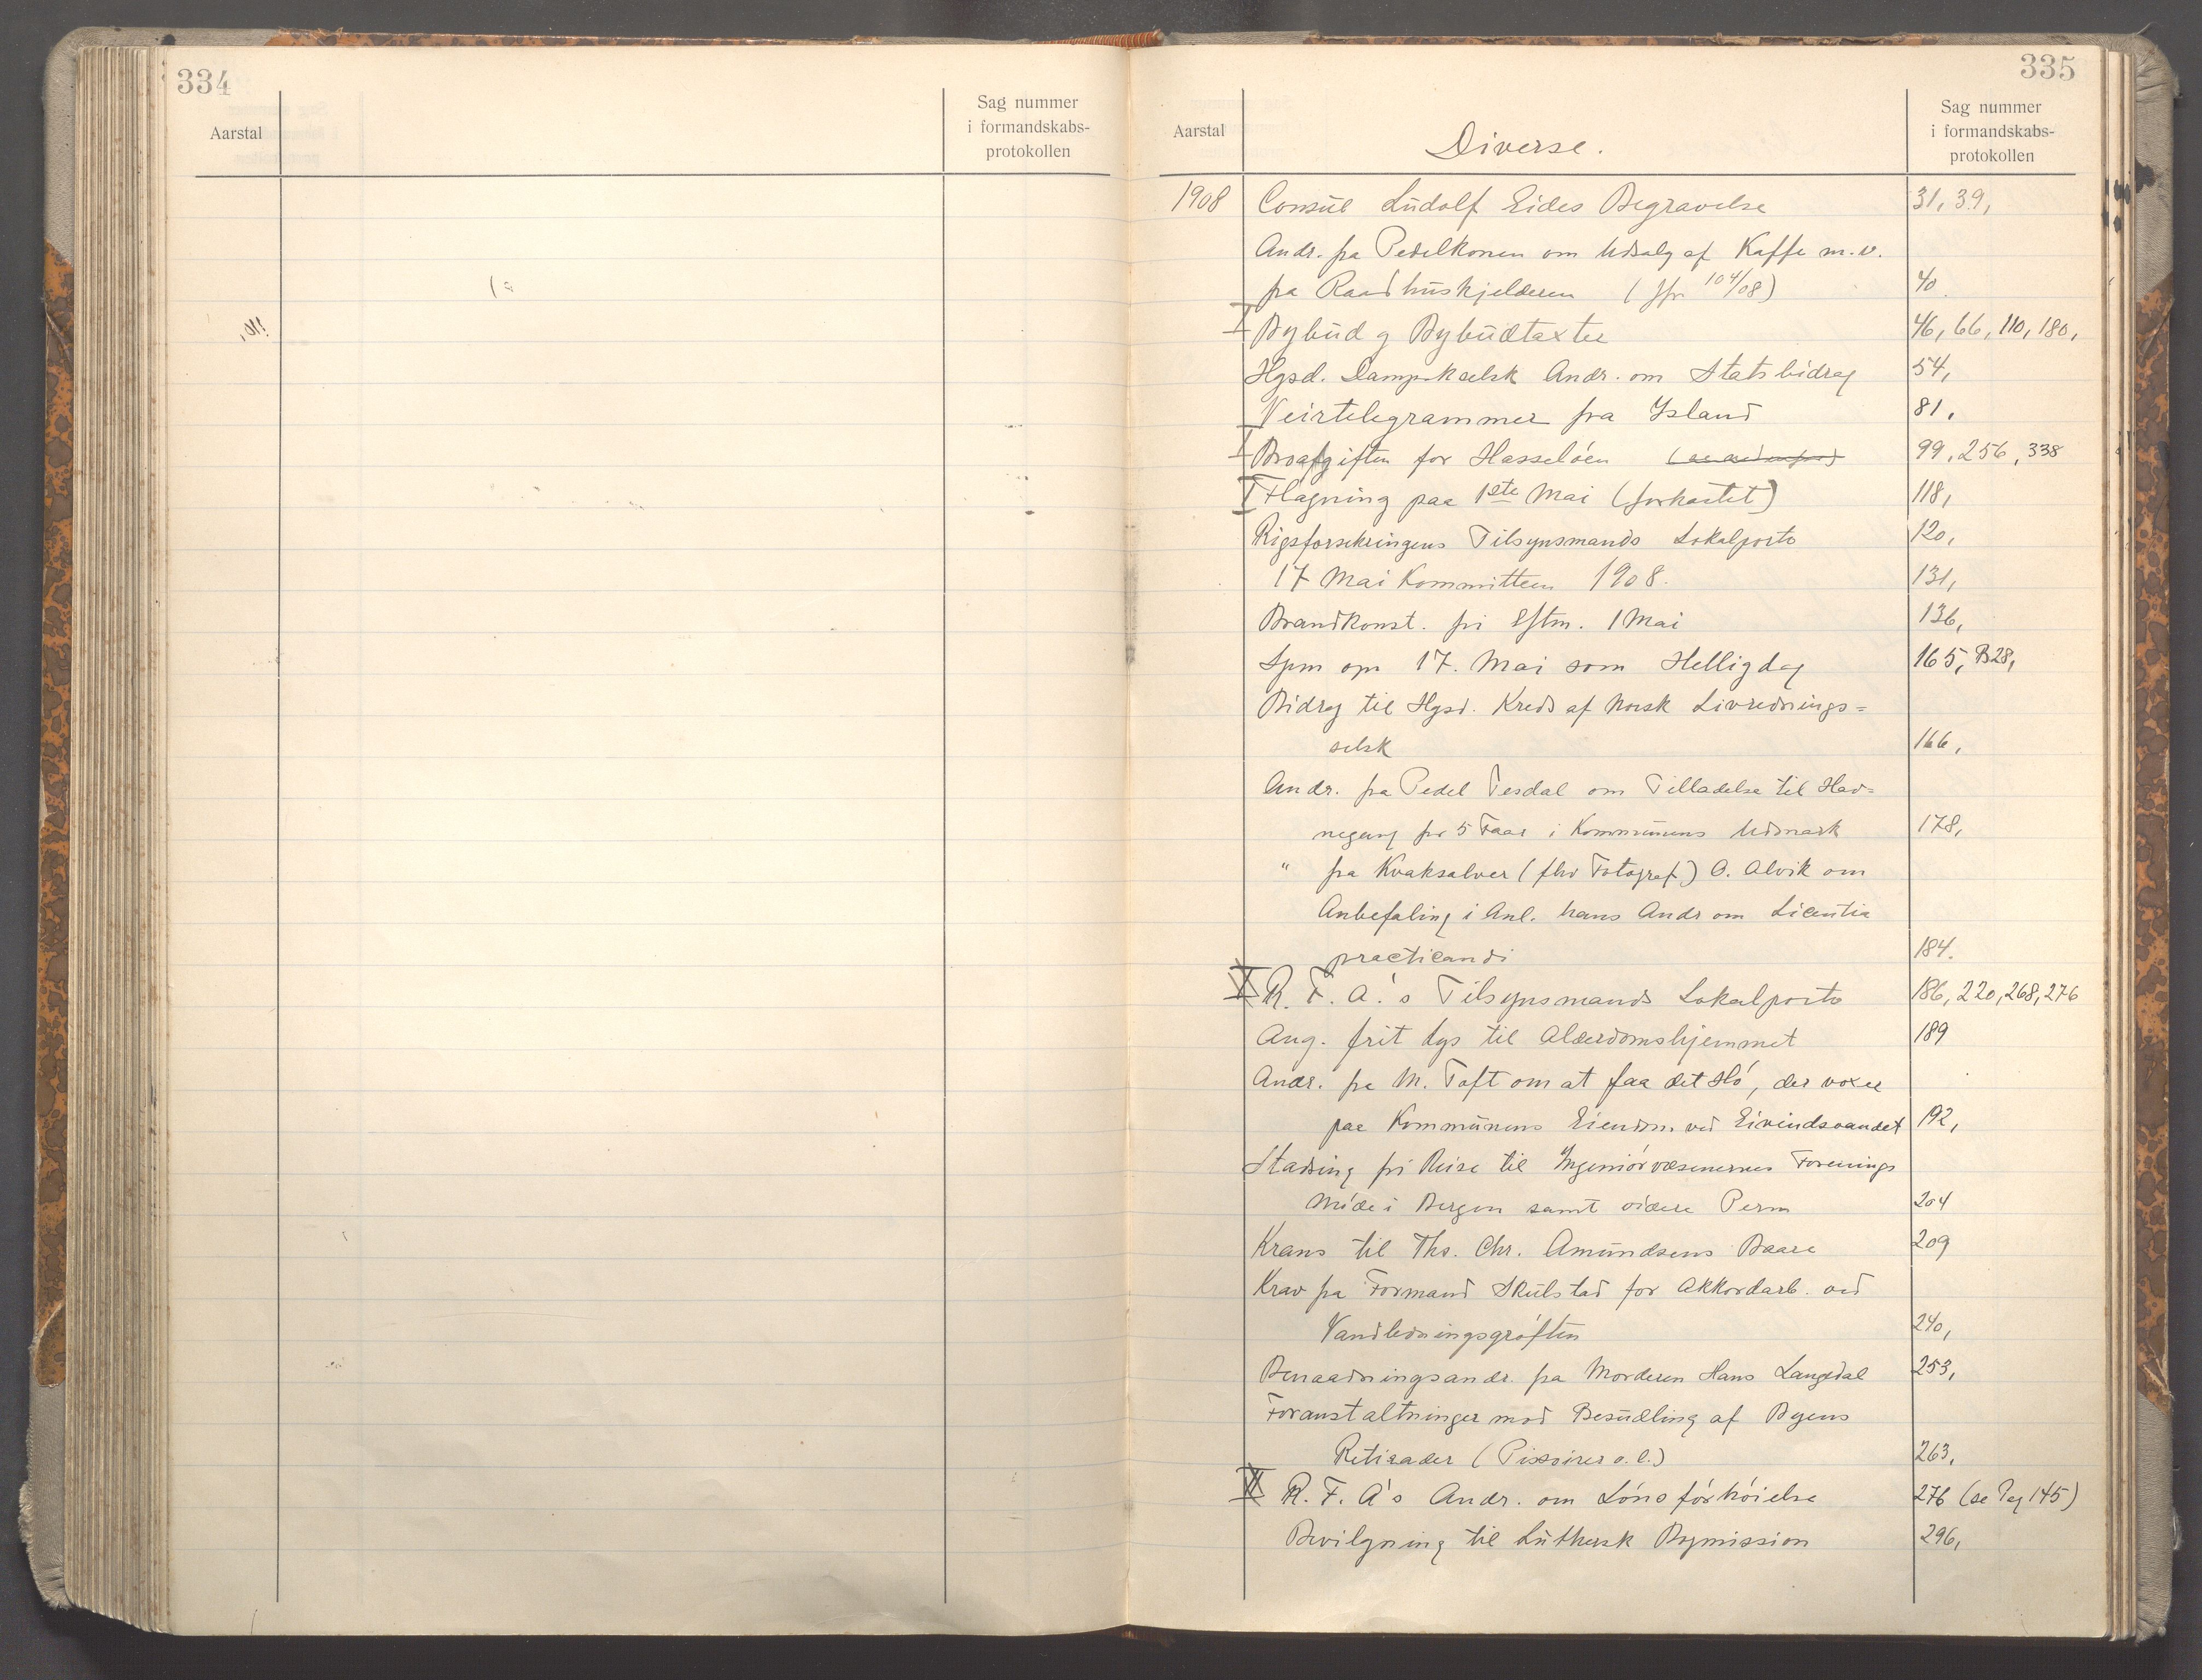 334
Aarstal
Sag nummer
i formandskabs-
protokollen
335
Aarstal
Diverse.
Sag nummer
i formandskabs-
protokollen
1908 Consul Ludolf Eides Begravelse 31, 39,
Andr. fra Pedelkonen om Udsalg af Kaffe m.v.
fra Raadhuskjelderen (Jfr 104/08) 40
Bybud og Bybudtaxter 46, 66, 110, 180,
Hgsd. Dampskselsk Andr. om Statsbidrag 54,
Veirtelegrammer fra Island 81.
Broafgiften for Hasseløen 99, 256, 338
Flagning paa 1ste Mai (forkastet) 118,
Rigsforsikringens Tilsynsmands Lokalporto 120,
17 Mai Kommitteen 1908. 131,
Brandkonst. fri Eftm. 1 Mai 136,
Spm om 17. Mai som Helligdag 165, B28,
Bidrag til Hgsd. Kreds af Norsk Livrednings=
selsk 166,
Andr. fra Pedel Tesdal om Tilladelse til Hav=
negang for 5 Faar i Kommunens Udmark 178,
" fra Kvaksalver (fhv Fotograf) O. Alvik om
Anbefaling i Anl. hans Andr om Licentia
practicandi 184.
R. F. A.'s Tilsynsmands Lokalporto 186, 220, 268, 276
Ang. frit Lys til Alderdomshjemmet 189
Andr. fra M. Toft om at faa det Hø, der voxer
paa Kommunens Eiendom ved Eivindsvandet 192,
Stadsing fri Reise til Ingeniørvæsenernes Forenings
Møde i Bergen samt videre Perm 204
Krans til Ths. Chr. Amundsens Baare 209
Krav fra Formand Skulstad for Akkordarb. ved
Vandledningsgrøften 240,
Benaadningsandr. fra Morderen Hans Langedal 253,
Foranstaltninger mod Besudling af Byens
Retirader (Pissoirer o.l.) 263,
R. F. A's Andr. om Lønsforhøielse 276 (se Pag 145)
Bevilgning til Luthersk Bymission 296,